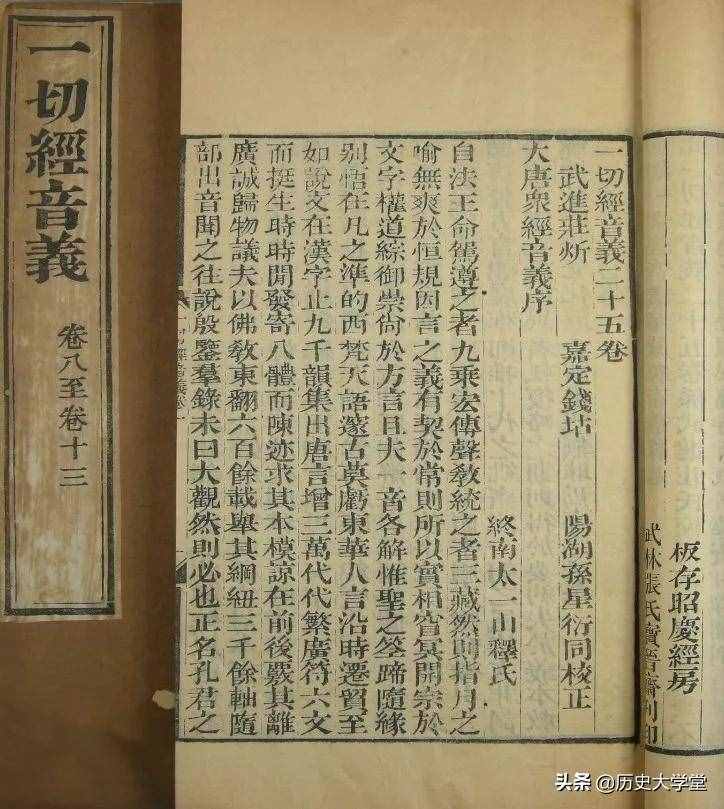 一切經音義
卷八至卷十三
板存昭慶經房
武林張氏寶晉齋刊印
一切經音義二十五卷
武進莊炘 嘉定錢坫 陽湖孫星衍同校正
大唐衆經音義序
終南太一山釋氏
自法王命駕遵之者九乘宏傳聲敎統之者三藏然則指月之
喻無爽於恒規因言之義有契於常則所以實相窅冥開宗於
文字權道綜御崇尙於方言且夫一音各解惟聖之筌蹄隨緣
別悟在凡之準的西梵天語邃古莫虧東華人言沿時遷貿至
如說文在漢字止九千韻集出唐言增三萬代代繁廣符六文
而挺生時時閒發寄八體而陳迹求其本模諒在前後覈其離
廣誠歸物議夫以佛敎東翻六百餘載舉其綱紐三千餘軸隨
部出音聞之往說殷鑒羣錄未曰大觀然則必也正名孔君之
头条 @历史大学堂